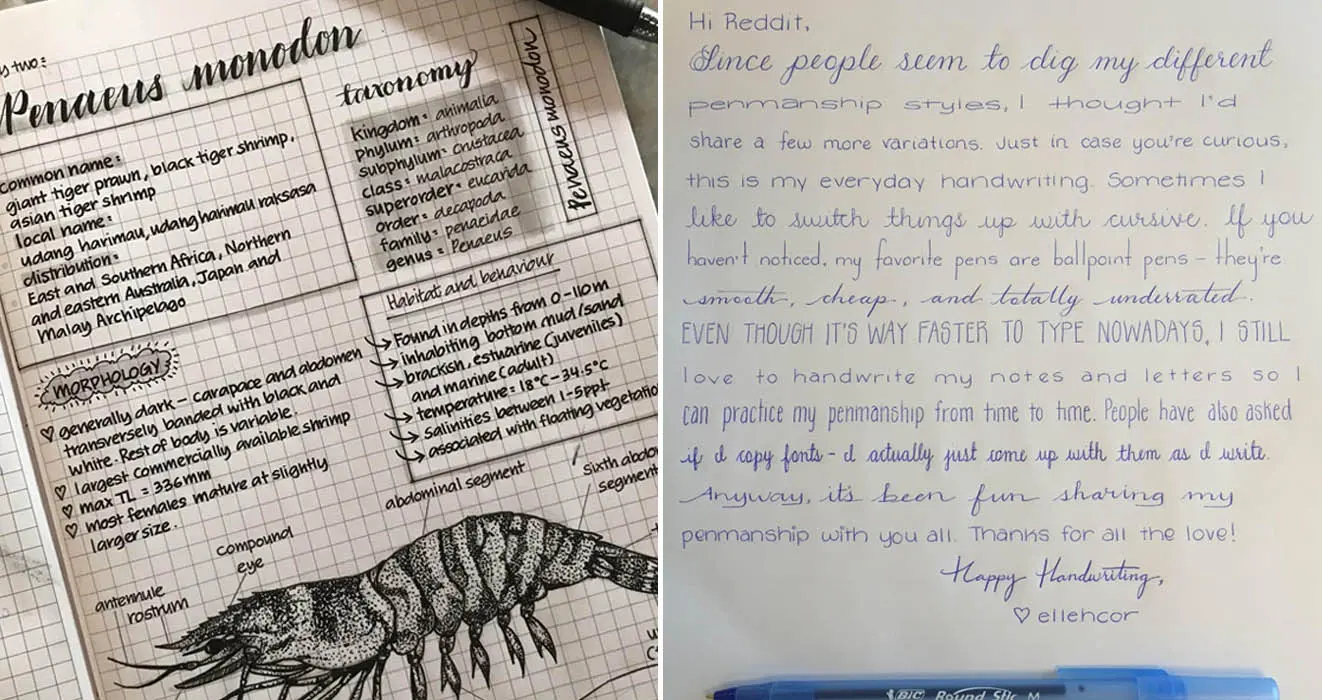 y two:
Penaeus monodon
common name:
giant tiger prawn, black tiger shrimp,
asian tiger shrimp
local name:
udang harimau, udang harimau raksasa
distribution:
East and Southern Africa, Northern
and eastern Australia, Japan and
Malay Archipelago
taxonomy
kingdom = animalia
phylum = arthropoda
subphylum = crustacea
class = malacostraca
superorder = eucarida
order = decapoda
family = penaeidae
genus = Penaeus
Penaeus monodon
MORPHOLOGY
♡ generally dark – carapace and abdomen
transversely banded with black and
white. Rest of body is variable.
♡ largest commercially available shrimp
♡ max TL = 336mm
♡ most females mature at slightly
larger size.
Habitat and behaviour
Found in depths from 0-110m
inhabiting bottom mud/sand
brackish, estuarine (juveniles)
and marine (adult)
temperature = 18°C – 34.5°C
salinities between 1-5ppt
associated with floating vegetatio
abdominal segment
sixth abdo
segment
compound
eye
antennule
rostrum
Hi Reddit,
Since people seem to dig my different
penmanship styles, I thought I'd
share a few more variations. Just in case you're curious,
this is my everyday handwriting. Sometimes I
like to switch things up with cursive. If you
haven't noticed, my favorite pens are ballpoint pens – they're
smooth, cheap, and totally underrated.
EVEN THOUGH IT'S WAY FASTER TO TYPE NOWADAYS, I STILL
love to handwrite my notes and letters so I
can practice my penmanship from time to time. People have also asked
if I copy fonts – I actually just come up with them as I write.
Anyway, it's been fun sharing my
penmanship with you all. Thanks for all the love!
Happy Handwriting,
♡ ellehcor
BIC Round Stic M